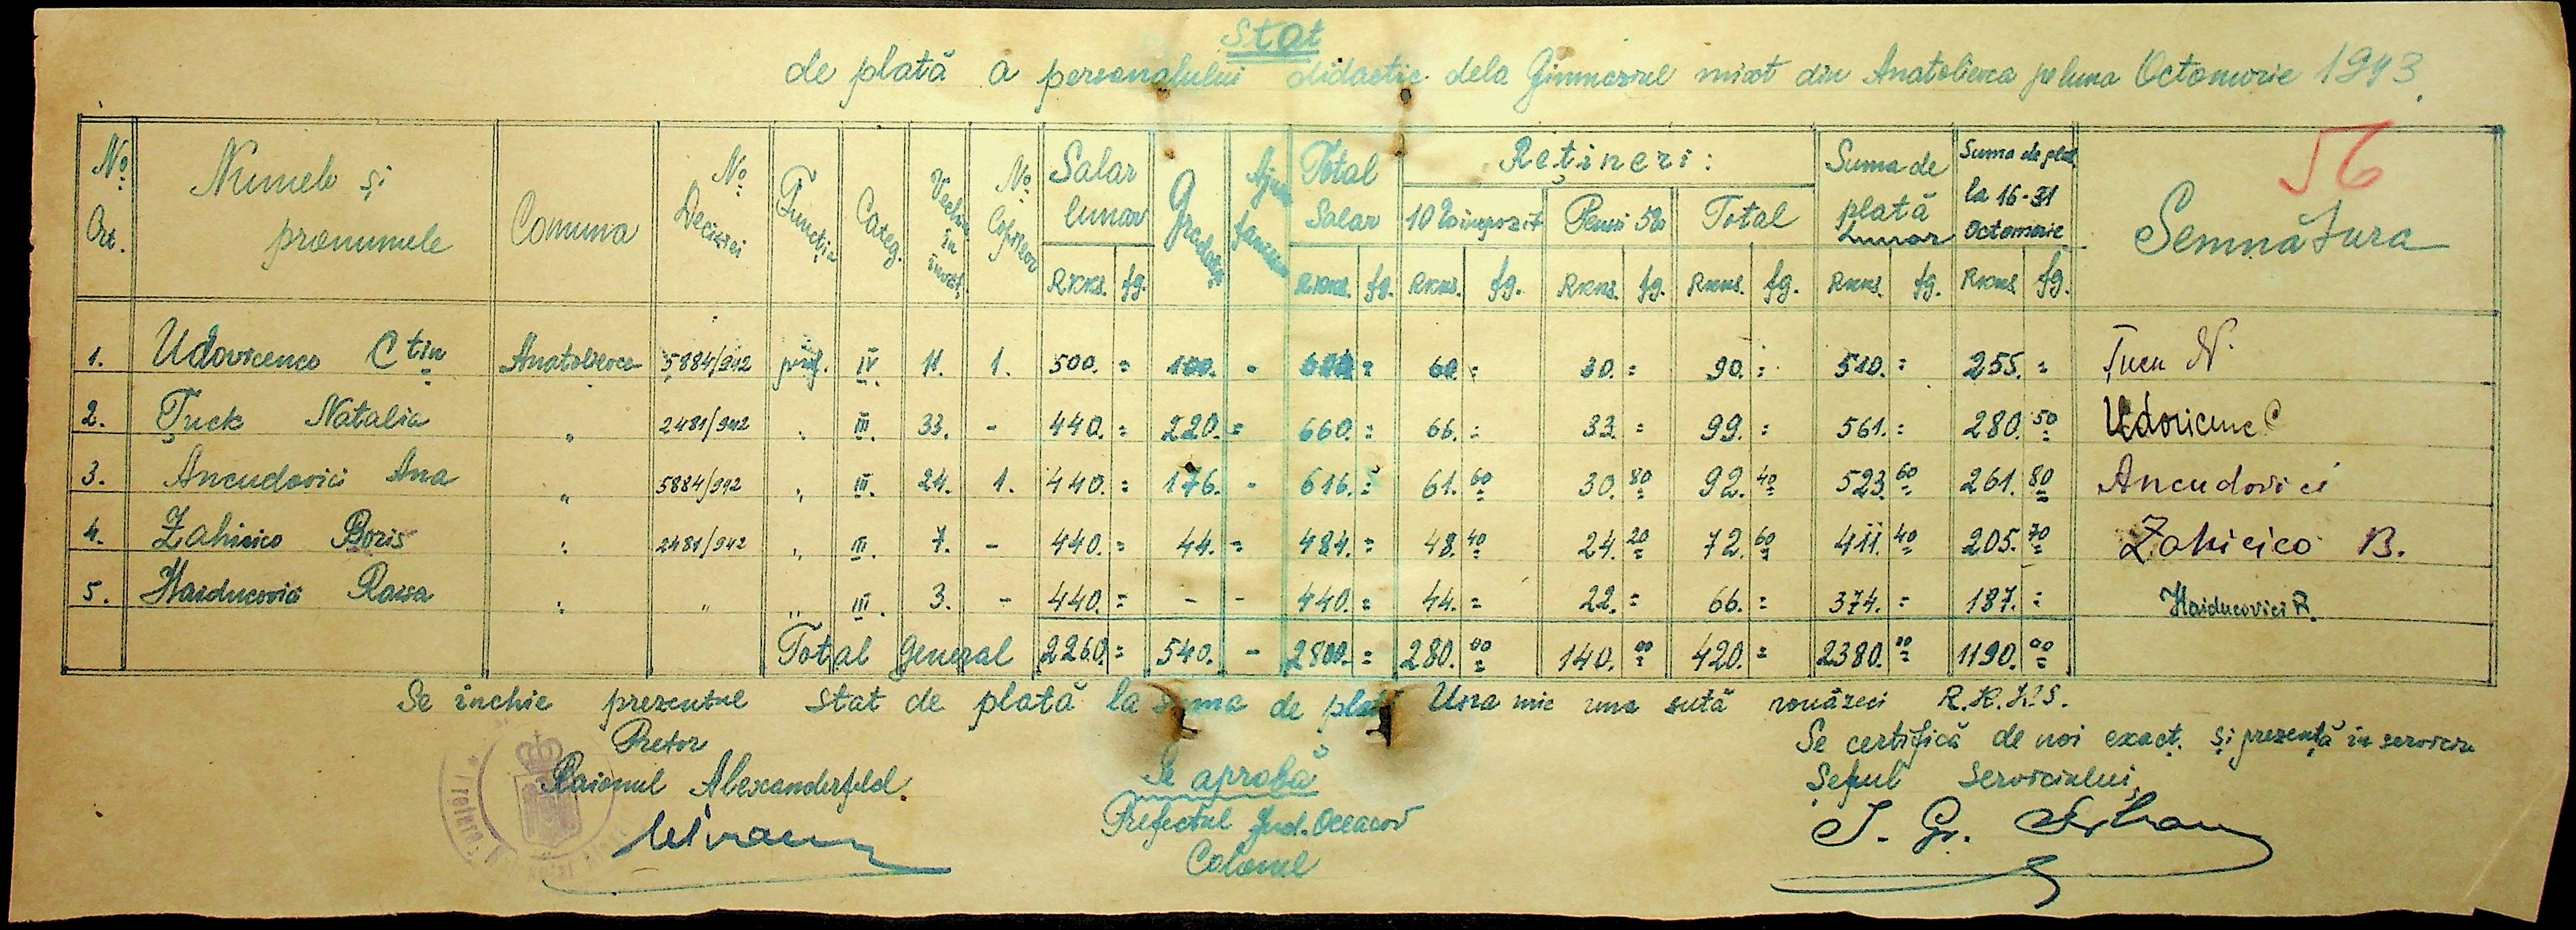 Stat
de plată a personalului didactic dela Gimnaziul mixt din Anatolievca pe luna Octomvrie 1943.
56
No. Crt. | Numele și pronumele | Comuna | No. Deciziei | Funcția | Categ. | Vechim în învăț. | No. Copiilor | Salar lunar Rkks. fg. | Gradația | Ajut. familiar | Total Salar Rkks. fg. | Rețineri: 10% impozit Rkks. fg. | Pensii 5% Rkks. fg. | Total Rkks. fg. | Suma de plată Lunar Rkks. fg. | Suma de plat. la 16-31 Octomvrie Rkks. fg. | Semnătura
1. Udovicenco Ctin Anatolievca 5884/942 prof. IV. 11. 1. 500. = 100. - 600. = 60. = 30. = 90. = 510. = 255. = Țucu N.
2. Țuck Natalia " 2481/942 " III. 33. - 440. = 220. = 660. = 66. = 33. = 99. = 561. = 280. 50 Udovicenc C
3. Ancudovici Ana " 5884/942 " III. 24. 1. 440. = 176. - 616. = 61. 60 30. 80 92. 40 523. 60 261. 80 Ancudovici
4. Zahicico Boris " 2481/942 " III. 7. - 440. = 44. = 484. = 48. 40 24. 20 72. 60 411. 40 205. 70 Zahicico B.
5. Haiducovici Raisa " " " III. 3. - 440. = - - 440. = 44. = 22. = 66. = 374. = 187. = Haiducovici R.
Total general 2260. = 540. - 2800. = 280. 00 140. 00 420. = 2380. 00 1190. 00
Se închie prezentul stat de plată la suma de plată Una mie una sută nouăzeci R.K.K.S.
Pretor
Raionul Alexanderfeld.
Se aprobă
Prefectul Jud. Oceacov
Colonel
Se certifică de noi exact. și prezență în serviciu
Șeful Serviciului,
I. Gr.